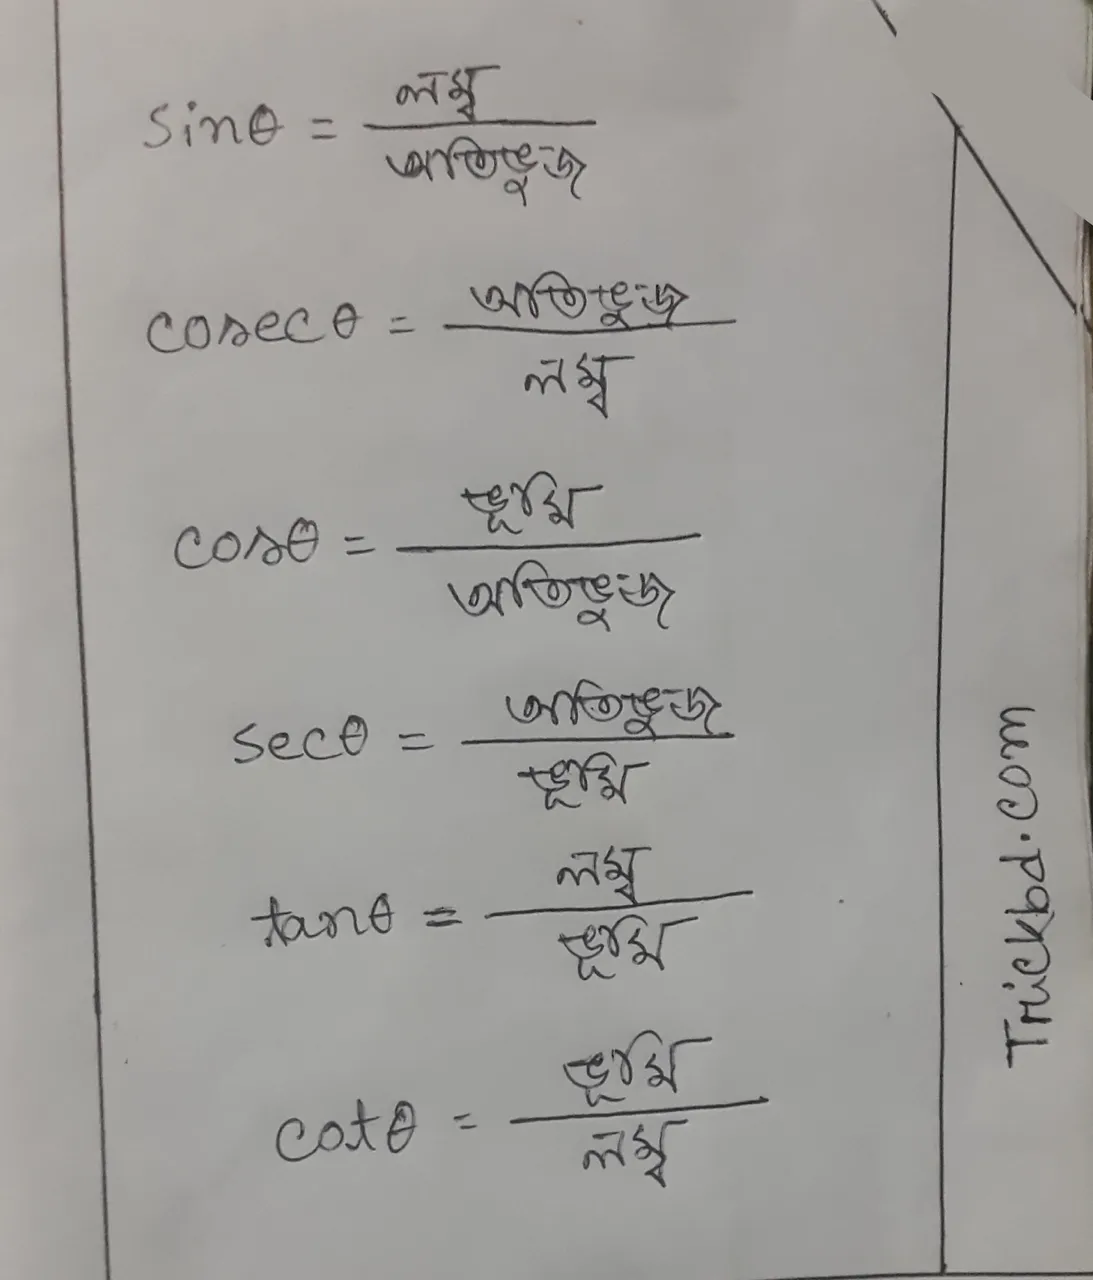 sinθ = লম্ব / অতিভুজ
cosecθ = অতিভুজ / লম্ব
cosθ = ভূমি / অতিভুজ
secθ = অতিভুজ / ভূমি
tanθ = লম্ব / ভূমি
cotθ = ভূমি / লম্ব
Trickbd.com